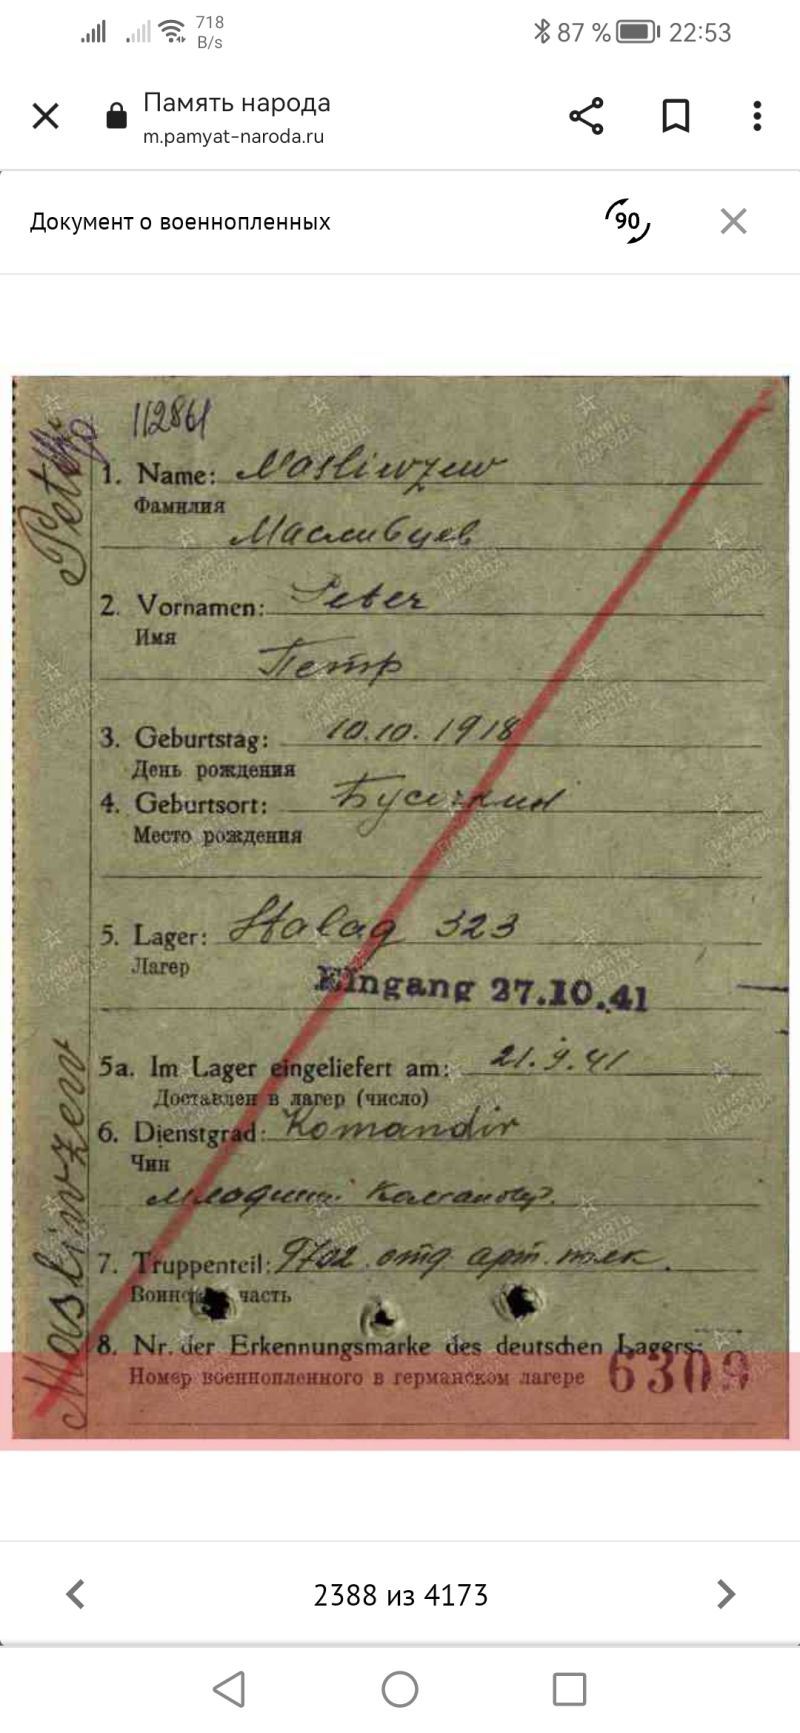 718
B/s
87 %
22:53
Память народа
m.pamyat-naroda.ru
Документ о военнопленных
90
112861
1. Name: Masliwzew
Фамилия
Масливцев
2. Vornamen: Peter
Имя
Петр
3. Geburtstag: 10.10.1918
День рождения
4. Geburtsort:
Место рождения
5. Lager: Stalag 323
Лагер
Eingang 27.10.41
5a. Im Lager eingeliefert am: 21.9.41
Доставлен в лагер (число)
6. Dienstgrad: Komandir
Чин
7. Truppenteil: отд арт. полк.
Воинская часть
8. Nr. der Erkennungsmarke des deutschen Lagers:
Номер военнопленного в германском лагере
6309
Masliwzew
2388 из 4173